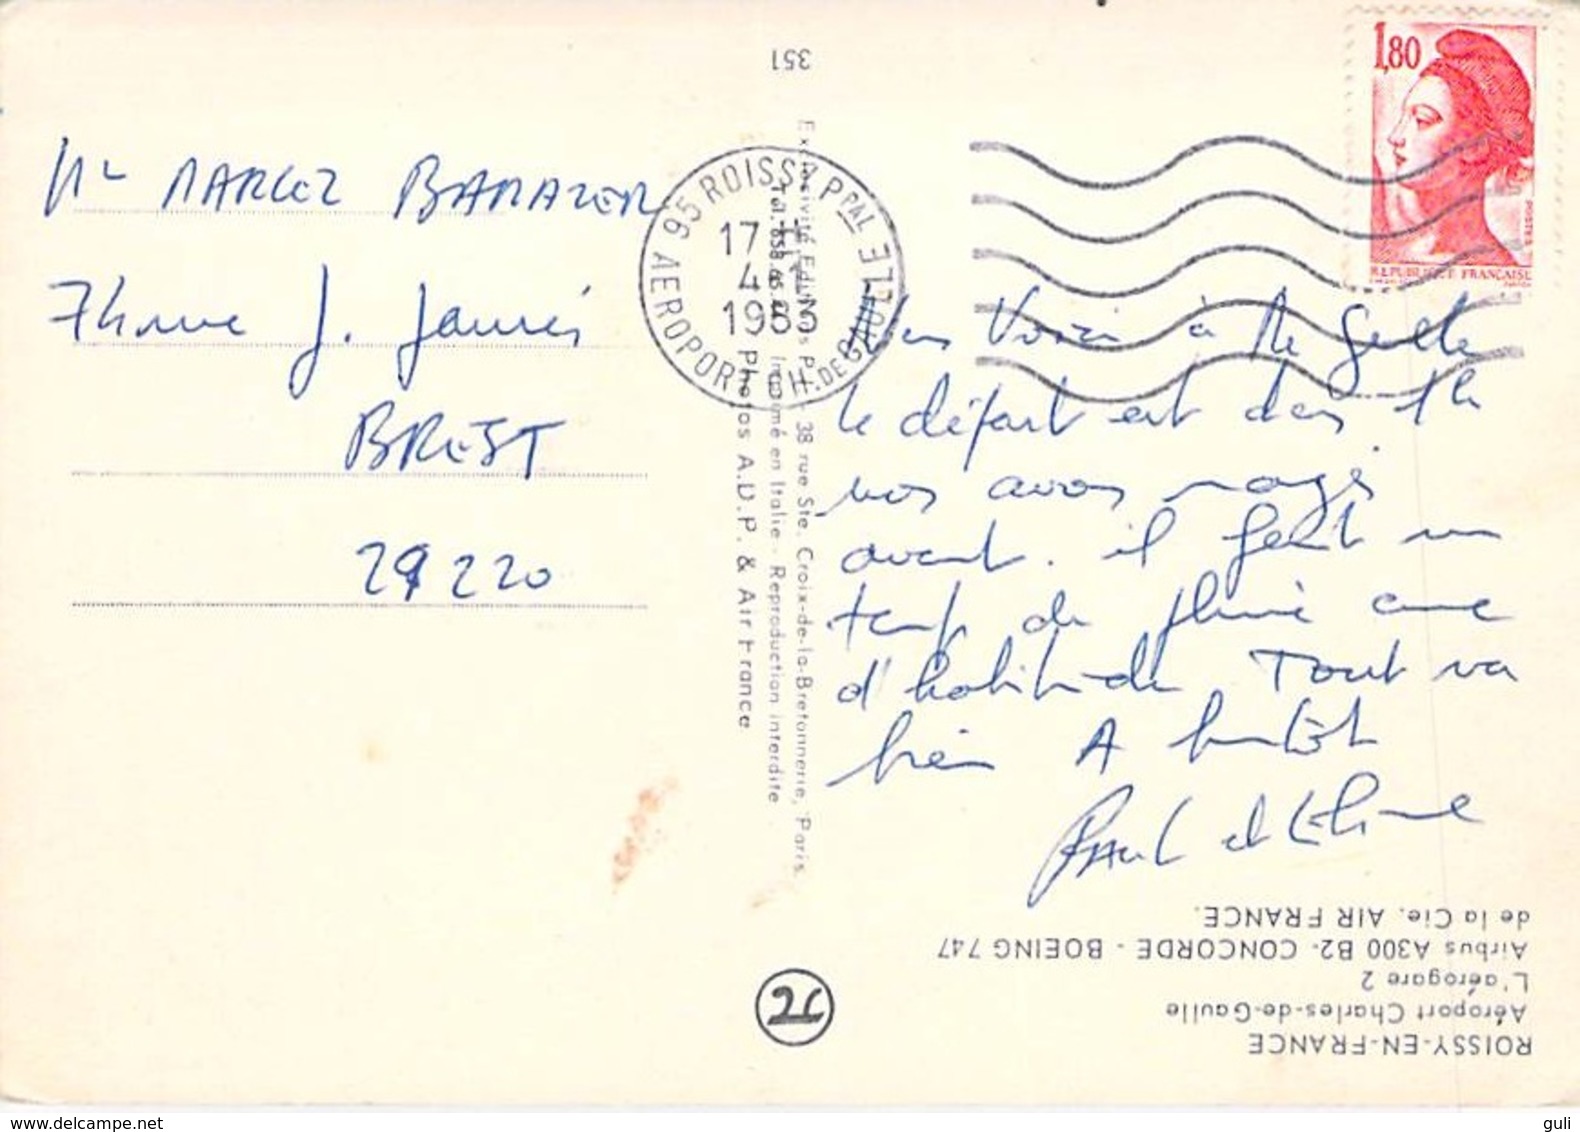 351
1,80
REPUBLIQUE FRANÇAISE
POSTES
95 ROISSY PPAL
AEROPORT CH. DE GAULLE
17 H
4
19
Mr MARCEL
7 J. Jaurès
BREST
29220
Voici à
le départ est dans 1h
nos avons
avant. il fait un
temps de pluie comme
d'habitude Tout va
bien A bientôt
Paul et
Exclusivité Editions P.I. - 38 rue Ste. Croix-de-la-Bretonnerie, Paris
Imprimé en Italie - Reproduction interdite
Photos A.D.P. & Air France
ROISSY-EN-FRANCE
Aéroport Charles-de-Gaulle
L'aérogare 2
Airbus A300 B2- CONCORDE - BOEING 747
de la Cie. AIR FRANCE.
www.delcampe.net
guli